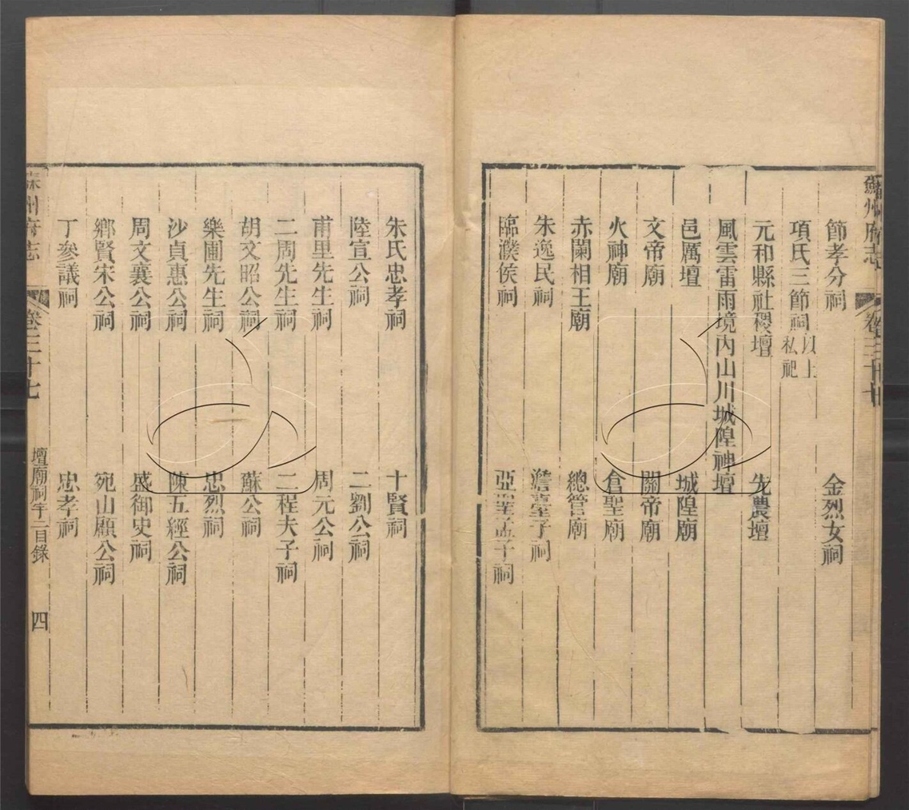 蘇州府志
卷三十七
節孝分祠
金烈女祠
項氏三節祠以上私祀
元和縣社稷壇
先農壇
風雲雷雨境內山川城隍神壇
邑厲壇
城隍廟
文帝廟
關帝廟
火神廟
倉聖廟
赤闌相王廟
總管廟
朱逸民祠
澹臺子祠
臨濮侯祠
亞聖孟子祠
朱氏忠孝祠
十賢祠
陸宣公祠
二劉公祠
甫里先生祠
周元公祠
二周先生祠
二程夫子祠
胡文昭公祠
蘇公祠
樂圃先生祠
忠烈祠
沙貞惠公祠
陳五經公祠
周文襄公祠
盛御史祠
鄉賢宋公祠
宛山顧公祠
丁參議祠
忠孝祠
蘇州府志
卷三十七
壇廟祠宇二目錄
四